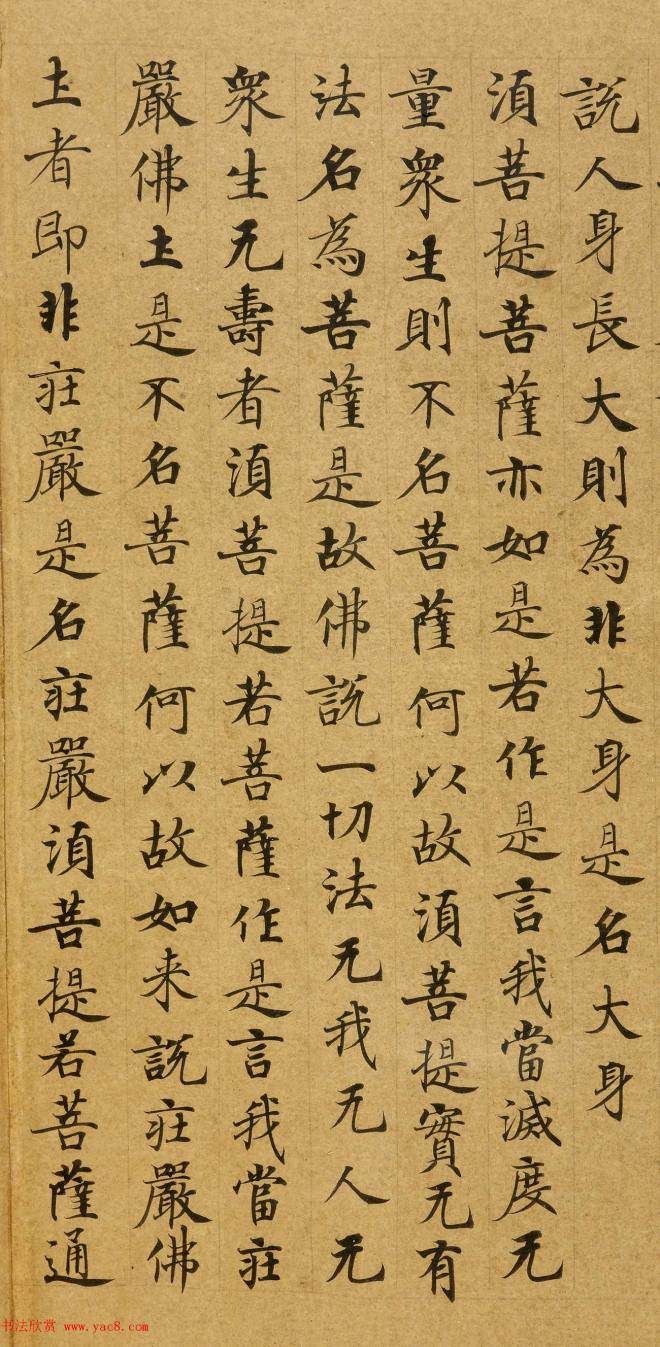 說人身長大則為非大身是名大身
湏菩提菩薩亦如是若作是言我當滅度无
量衆生則不名菩薩何以故湏菩提實无有
法名為菩薩是故佛說一切法无我无人无
衆生无壽者湏菩提若菩薩作是言我當莊
嚴佛土是不名菩薩何以故如来說莊嚴佛
土者即非莊嚴是名莊嚴湏菩提若菩薩通
书法欣赏 www.yac8.com